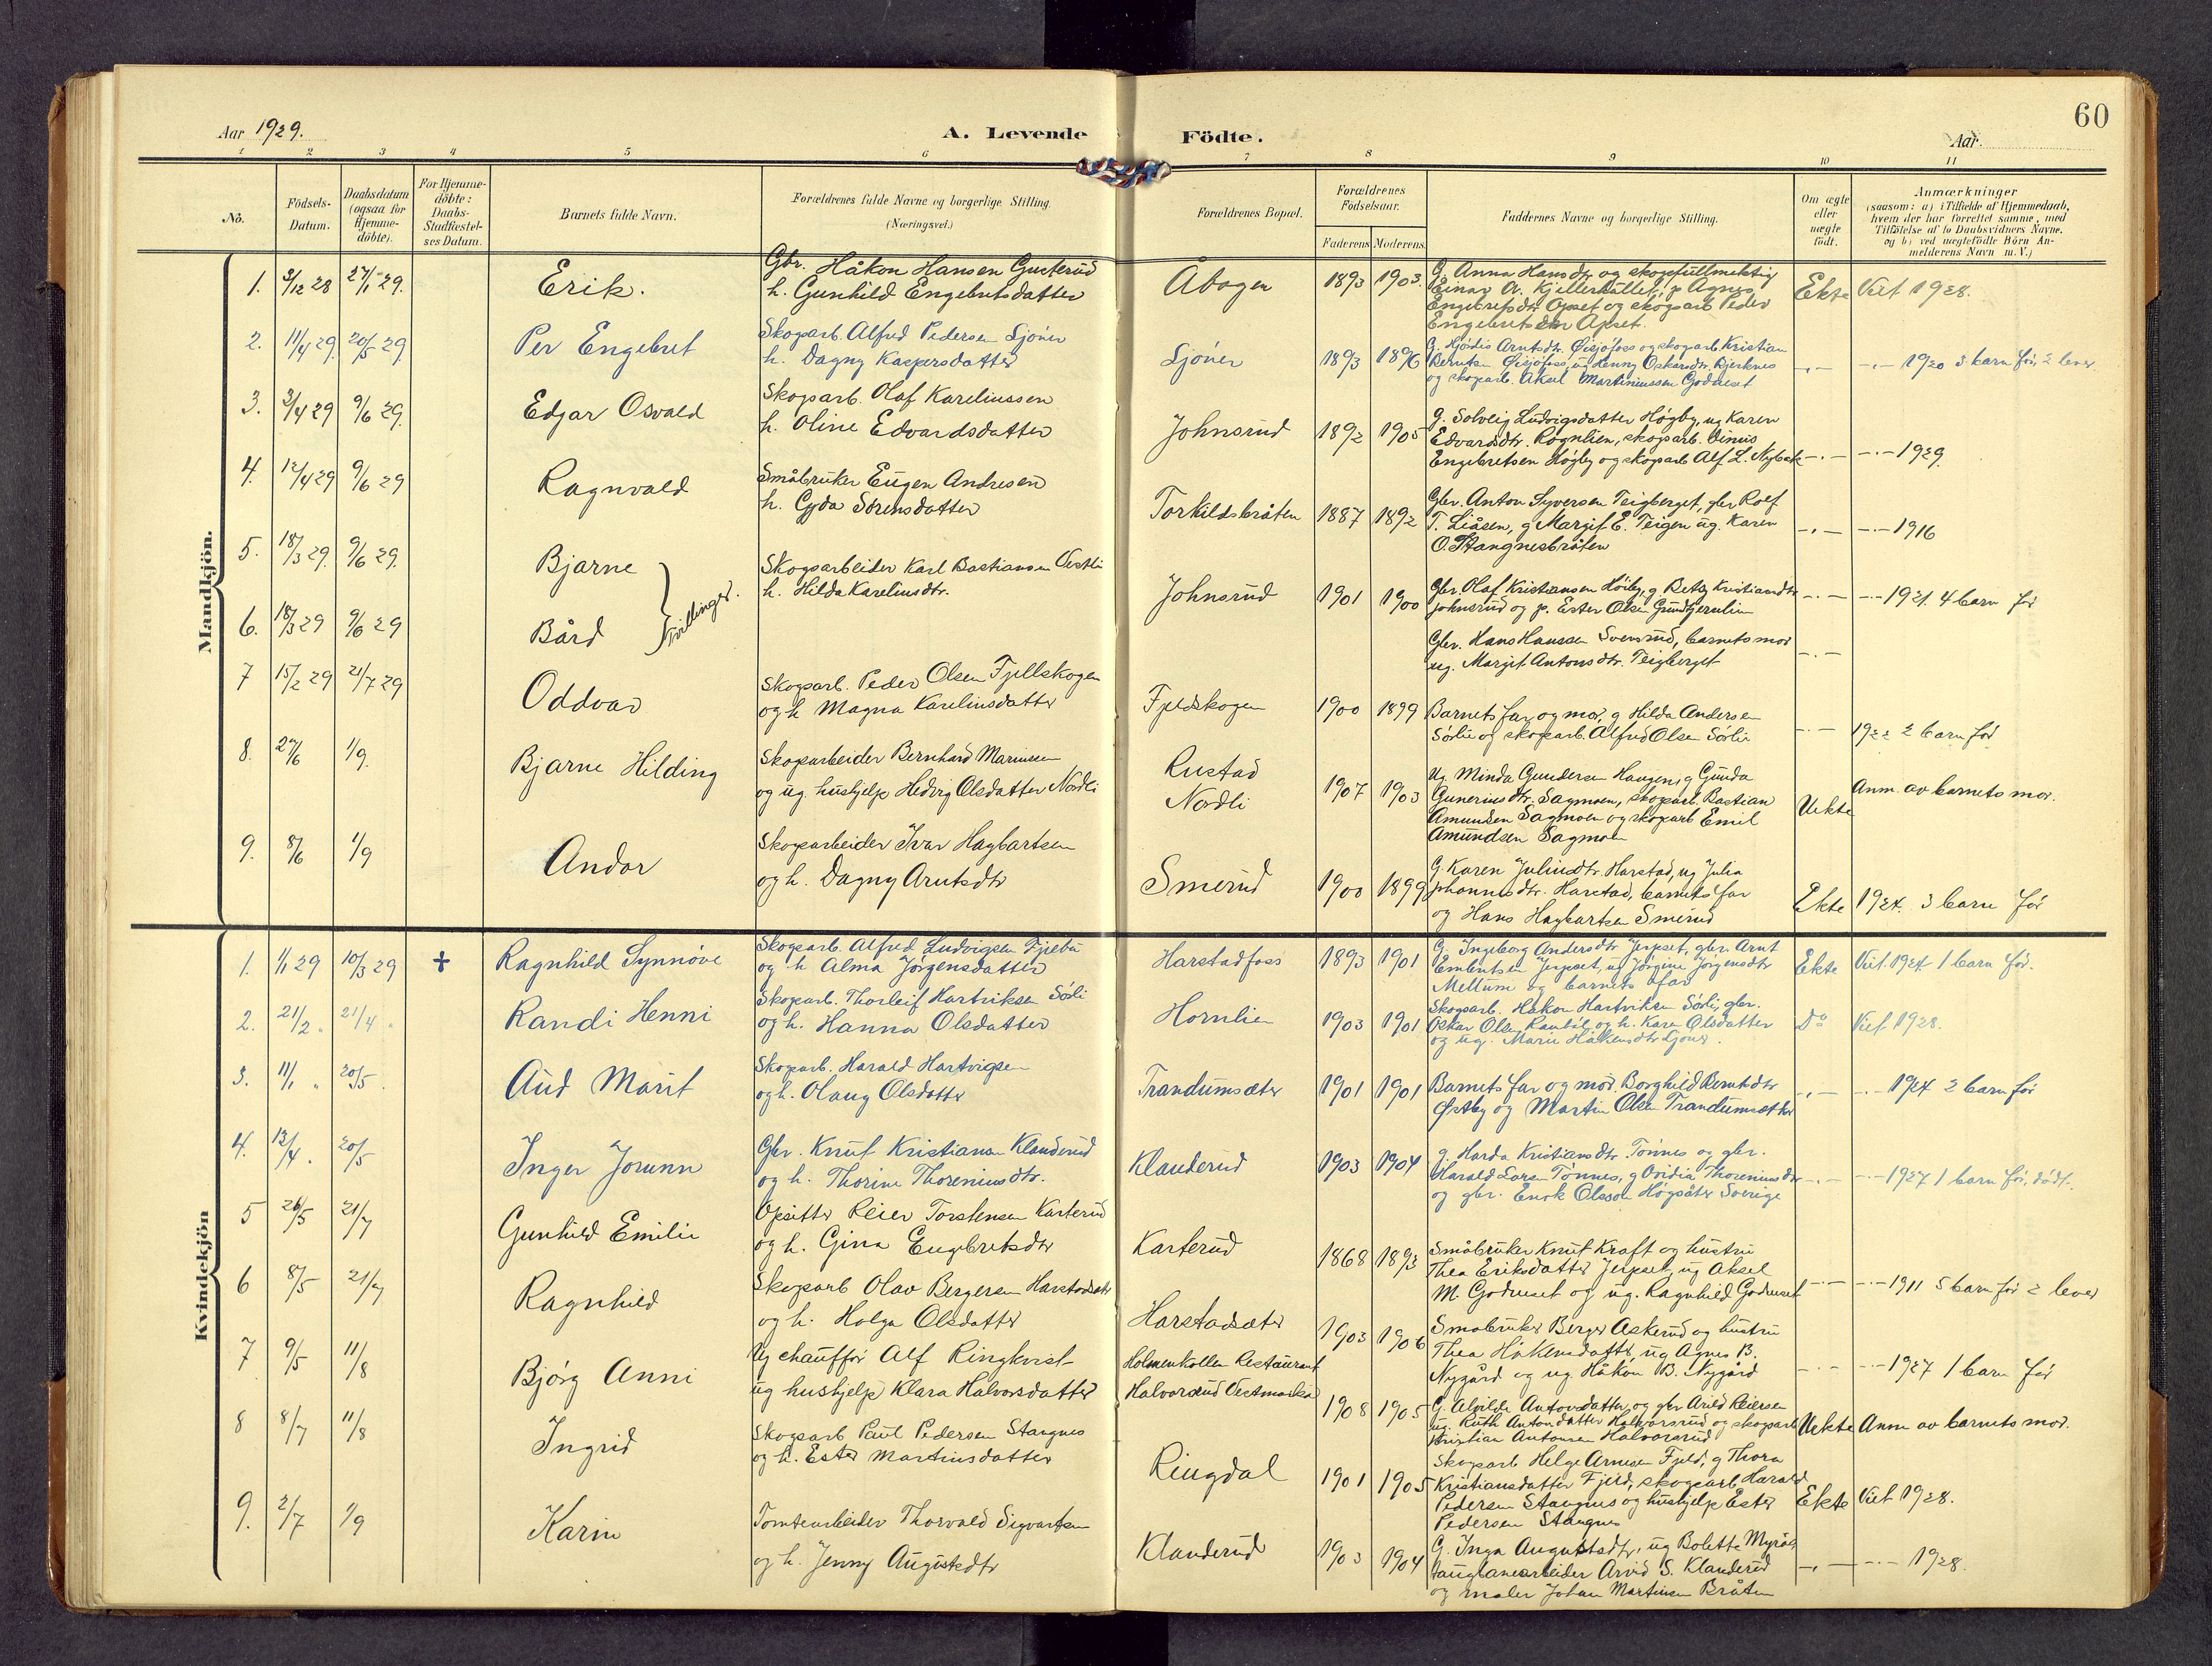 60
Aar 1929.
A. Levende Födte.
Aar
1 2 3 4 5 6 7 8 9 10 11
No.
Födsels-Datum.
Daabsdatum (ogsaa for Hjemme-döbte).
For Hjemme-döbte: Daabs-Stadfæstel-ses Datum.
Barnets fulde Navn.
Forældrenes fulde Navne og borgerlige Stilling (Næringsvei.)
Forældrenes Bopæl.
Forældrenes Födselsaar.
Faderens Moderens
Faddernes Navne og borgerlige Stilling.
Om ægte eller uægte födt.
Anmærkninger
(saasom: a) i Tilfælde af Hjemmedaab,
hvem der har forrettet samme, med
Tilföielse af to Daabsvidners Navne.
og b) ved uægtefödte Börn An-
melderens Navn m. V.)
Mandkjön.
1. 3/12 28 27/1 29. Erik.
Gbr. Håkon Hansen Gusterud
h. Gunhild Engebretsdatter
Åbogen 1893 1903.
G. Anna Hansdtr og skogsfullmektig
Einar Kr. Kjellerhaltet, p Agnes
Engebretsdtr Opset og skogsarb Peder
Engebretsen Opset.
Ekte Viet 1928.
2. 11/4 29. 20/5 29 Per Engebret
Skogsarb. Alfred Pedersen Ljöner
h. Dagny Kaspersdatter
Ljöner 1893 1896
G. Hjördis Arntsdtr. Öisjöfoss og skogsarb. Kristian
Berntsen Öisjöfoss, ug Jenny Oskarsdtr. Bjerknes
og skogsarb. Aksel Martiniussen Godueset
-.- -.- 1920 3 barn før, 2 lever
3. 3/4 29 9/6 29. Edgar Osvald
Skogsarb. Olaf Kareliussen
h. Oline Edvardsdatter
Johnsrud 1892 1905
g. Solveig Ludvigsdatter Högby, ug Karen
Edvardsdtr. Rognlien, skogsarb. Einus
Engebretsen Högby og skogsarb Alf L. Nybak
-.- -.- 1929.
4. 12/4 29 9/6 29 Ragnvald
Småbruker Eugen Andresen
h. Gyda Sörensdatter
Torkildsbråten 1887 1892
Gbr. Anton Syversen Teigberget, gbr Rolf
T. Liåsen, g Margit E. Teigen ug. Karen
O. Stangnesbråten
-.- -.- 1916
5. 18/3 29. 9/6 29. Bjarne
Skogsarbeider Karl Bastiansen Vestli
h. Hilda Kareliusdtr.
Johnsrud 1901 1900
Gbr. Olaf Kristiansen Höiby, g Betzy Kristiansdtr
Johnsrud og p. Ester Olsen Gundhjernlien
-.- -.- 1921. 4 barn før
6. 18/3 29 9/6 29 Bård
Tvillinger.
Gbr. Hans Hansen Svensrud, barnets mor
ug. Margit Antonsdtr. Teigberget
-.-
7 15/2 29 21/7 29 Oddvar
Skogsarb. Peder Olsen Fjellskogen
og h Magna Kareliusdatter
Fjeldskogen 1900 1899
Barnets far og mor, g Hilda Andersen
Sörlie og skogsarb. Alfred Olsen Sörlie
-.- 1922 2 barn før
8. 27/6 1/9. Bjarne Hilding
Skogsarbeider Bernhard Mariussen
og ug. hushjelp Hedvig Olsdatter Nordli
Rustad
Nordli
1907 1903
Ug Minda Gundersen Haugen, g Gunda
Guneriusdtr. Sagmoen, skogsarb. Bastian
Amundsen Sagmoen og skogsarb Emil
Amundsen Sagmoen
Uekte Anm. av barnets mor.
9. 8/6 1/9 Andor
Skogsarbeider Ivar Hagbartsen
og h. Dagny Arntsdtr
Smerud 1900 1899
G. Karen Juliusdtr. Harstad, ug Julia
Johannesdtr. Harstad, barnets far
og Hans Hagbartsen Smerud
Ekte 1924. 3 barn før
Kvindekjön
1. 1/1 29 10/3 29 + Ragnhild Synnöve
Skogsarb. Alfred Ludvigsen Fjiebu
og h Alma Jörgensdatter
Harstadfoss 1893 1901
G. Ingeborg Andersdtr Jerpset, gbr. Arnt
Embretsen Jerpset, ug Jörgine Jörgensdtr
Mellum og barnets far
Ekte Viet. 1924 1 barn før.
2. 21/2 „ 21/4 „ Randi Henni
Skogsarb. Thorleif Hartviksen Sörli
og h. Hanna Olsdatter
Hornlien 1903 1901
Skogsarb. Håkon Hartviksen Sörli, gbr.
Oskar Olsen Ramböl og h. Karen Olsdatter
og ug. Marie Håkensdtr Ljöner.
Do Viet 1928.
3. 11/1 „ 20/5 . Aud Marit
Skogsarb. Harald Hartvigsen
og h. Olaug Olsdatter
Trandumsæter 1901 1901
Barnets far og mor Borghild Berntsdtr
Östby og Martin Olsen Trandumsætter
-.- -.- 1924 2 barn før
4. 13/4 . 20/5 Inger Jorunn
Gbr. Knut Kristiansen Klanderud
og h. Thorine Thoreniusdtr.
Klanderud 1903 1904
g. Harda Kristiansdtr Tönnes og gbr.
Harald Larsen Tönnes, g Ovidia Thoreniusdtr
og gbr. Enok Olsson Högsäter Sverige
-.- -.- 1927 1 barn før, dödt.
5 26/5 21/7 Gunhild Emilie
Opsitter Reier Torstensen Karterud
og h. Gina Engebretsdtr
Karterud 1868 1893
Småbruker Knut Kraft og hustru
Thea Eriksdatter Jerpset, ug Aksel
M. Godueset og ug. Ragnhild Godueset
-.- -.- 1911 5 barn før 2 lever
6 8/5 21/7 Ragnhild
Skogsarb Olav Bergersen Harstadsæter
og h. Helga Olsdatter
Harstadsæter 1903 1906
Småbruker Berger Askerud og hustru
Thea Håkensdatter, ug Agnes B.
Nygård og ug. Håkon B. Nygård
-.- -.- 1927 1 barn før
7 9/5 11/8 Bjørg Anni
Ug chauffør Alf Ringkvist
ug hushjelp Klara Halvorsdatter
Holmenkollen Restaurant
Halvorsrud Vestmarka
1908 1905
G. Alvilde Antonsdatter og gbr Arild Reiersen
ug. Ruth Antonsdatter Halvorsrud og skogsarb
Kristian Antonsen Halvorsrud
Uekte Anm av barnets mor.
8 8/7 11/8 Ingrid
Skogsarb Paul Pedersen Stangnes
og h. Ester Martinsdatter
Ringdal 1901 1905
Skogsarb Helge Arnesen Fjeld, g Thora
Kristiansdatter Fjeld, skogsarb Harald
Pedersen Stangnes og hushjelp Ester
Pedersen Stangnes
Ekte Viet 1928.
9. 2/7 1/9 Karin
Tomtearbeider Thorvald Sigvartsen
og h. Jenny Augustsdtr
Klanderud 1903 1904
G. Inga Augustsdtr, ug Bolette Myrås
Arvid S. Klanderud
og maler Johan Martinsen Bråten
-.- -.- 1928.